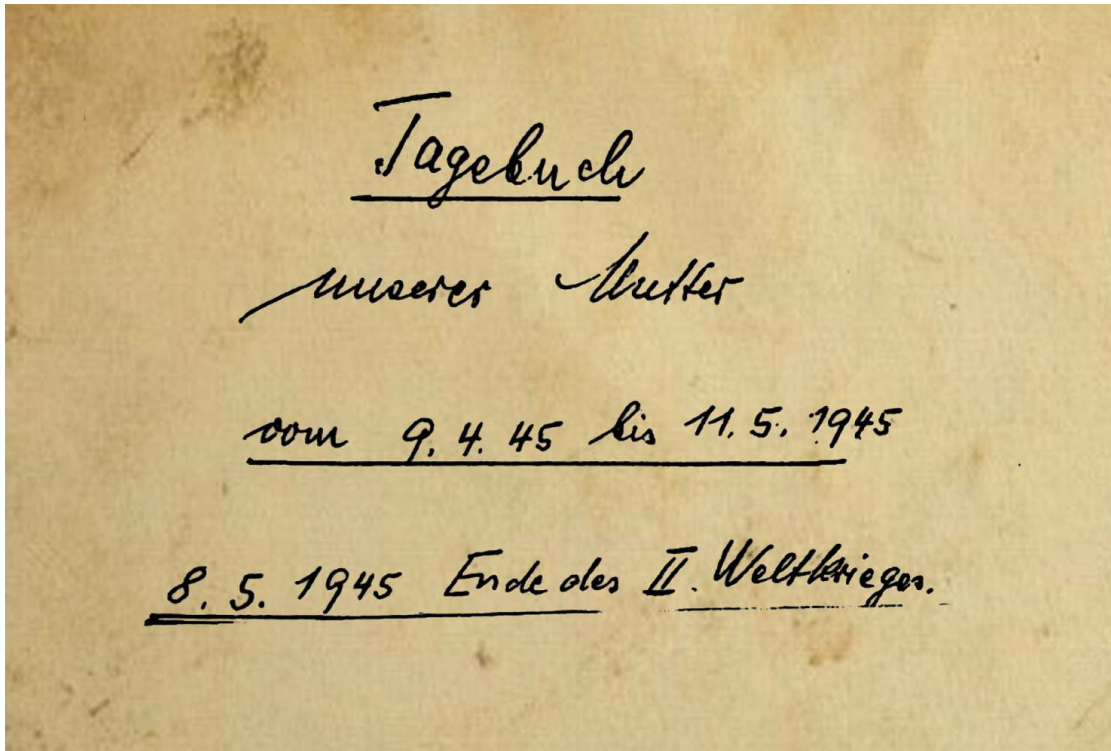 Tagebuch
unserer Mutter
vom 9.4.45 bis 11.5.1945
8.5.1945 Ende des II. Weltkrieges.